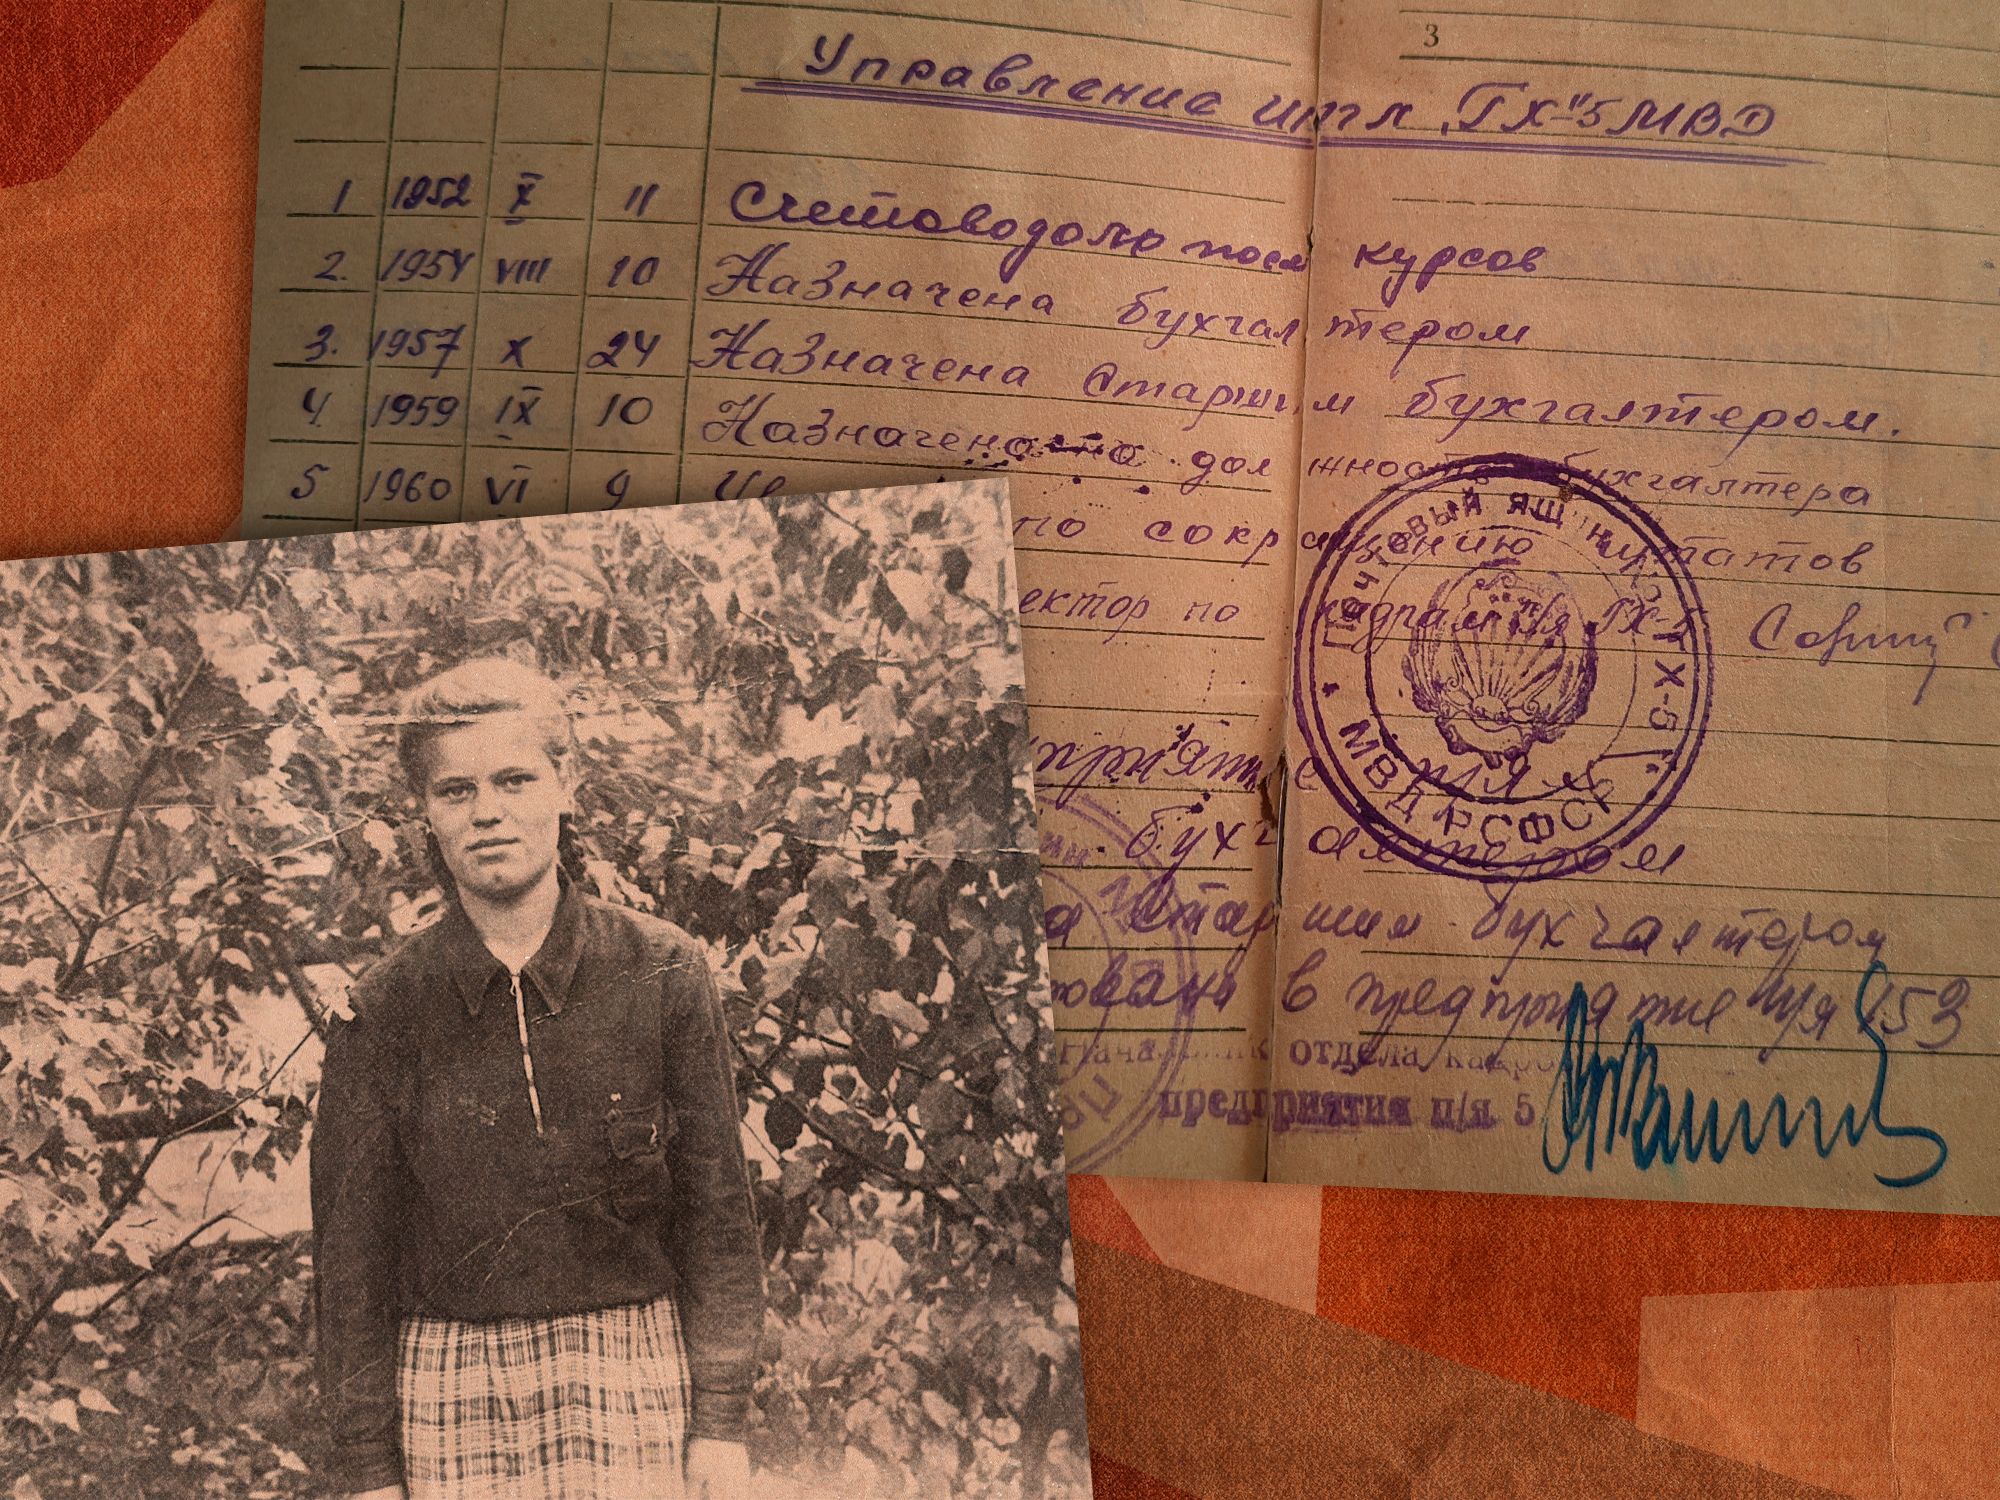 3
Управление ИТЛ „ГХ"-5 МВД
1 1952 X 11 Счетоводом после курсов
2. 1954 VIII 10 Назначена бухгалтером
3. 1957 X 24 Назначена Старшим бухгалтером.
4. 1959 IX 10 Назначена на должность бухгалтера
5 1960 VI 9 по сокращению штатов
ектор по кадрам п/я ГХ-5
ПОЧТОВЫЙ ЯЩИК ГХ-5
МВД РСФСР
п/я
бухгалтером
а старшим бухгалтером
в предприятие п/я 153
Начальник отдела кадров
предприятия п/я 5